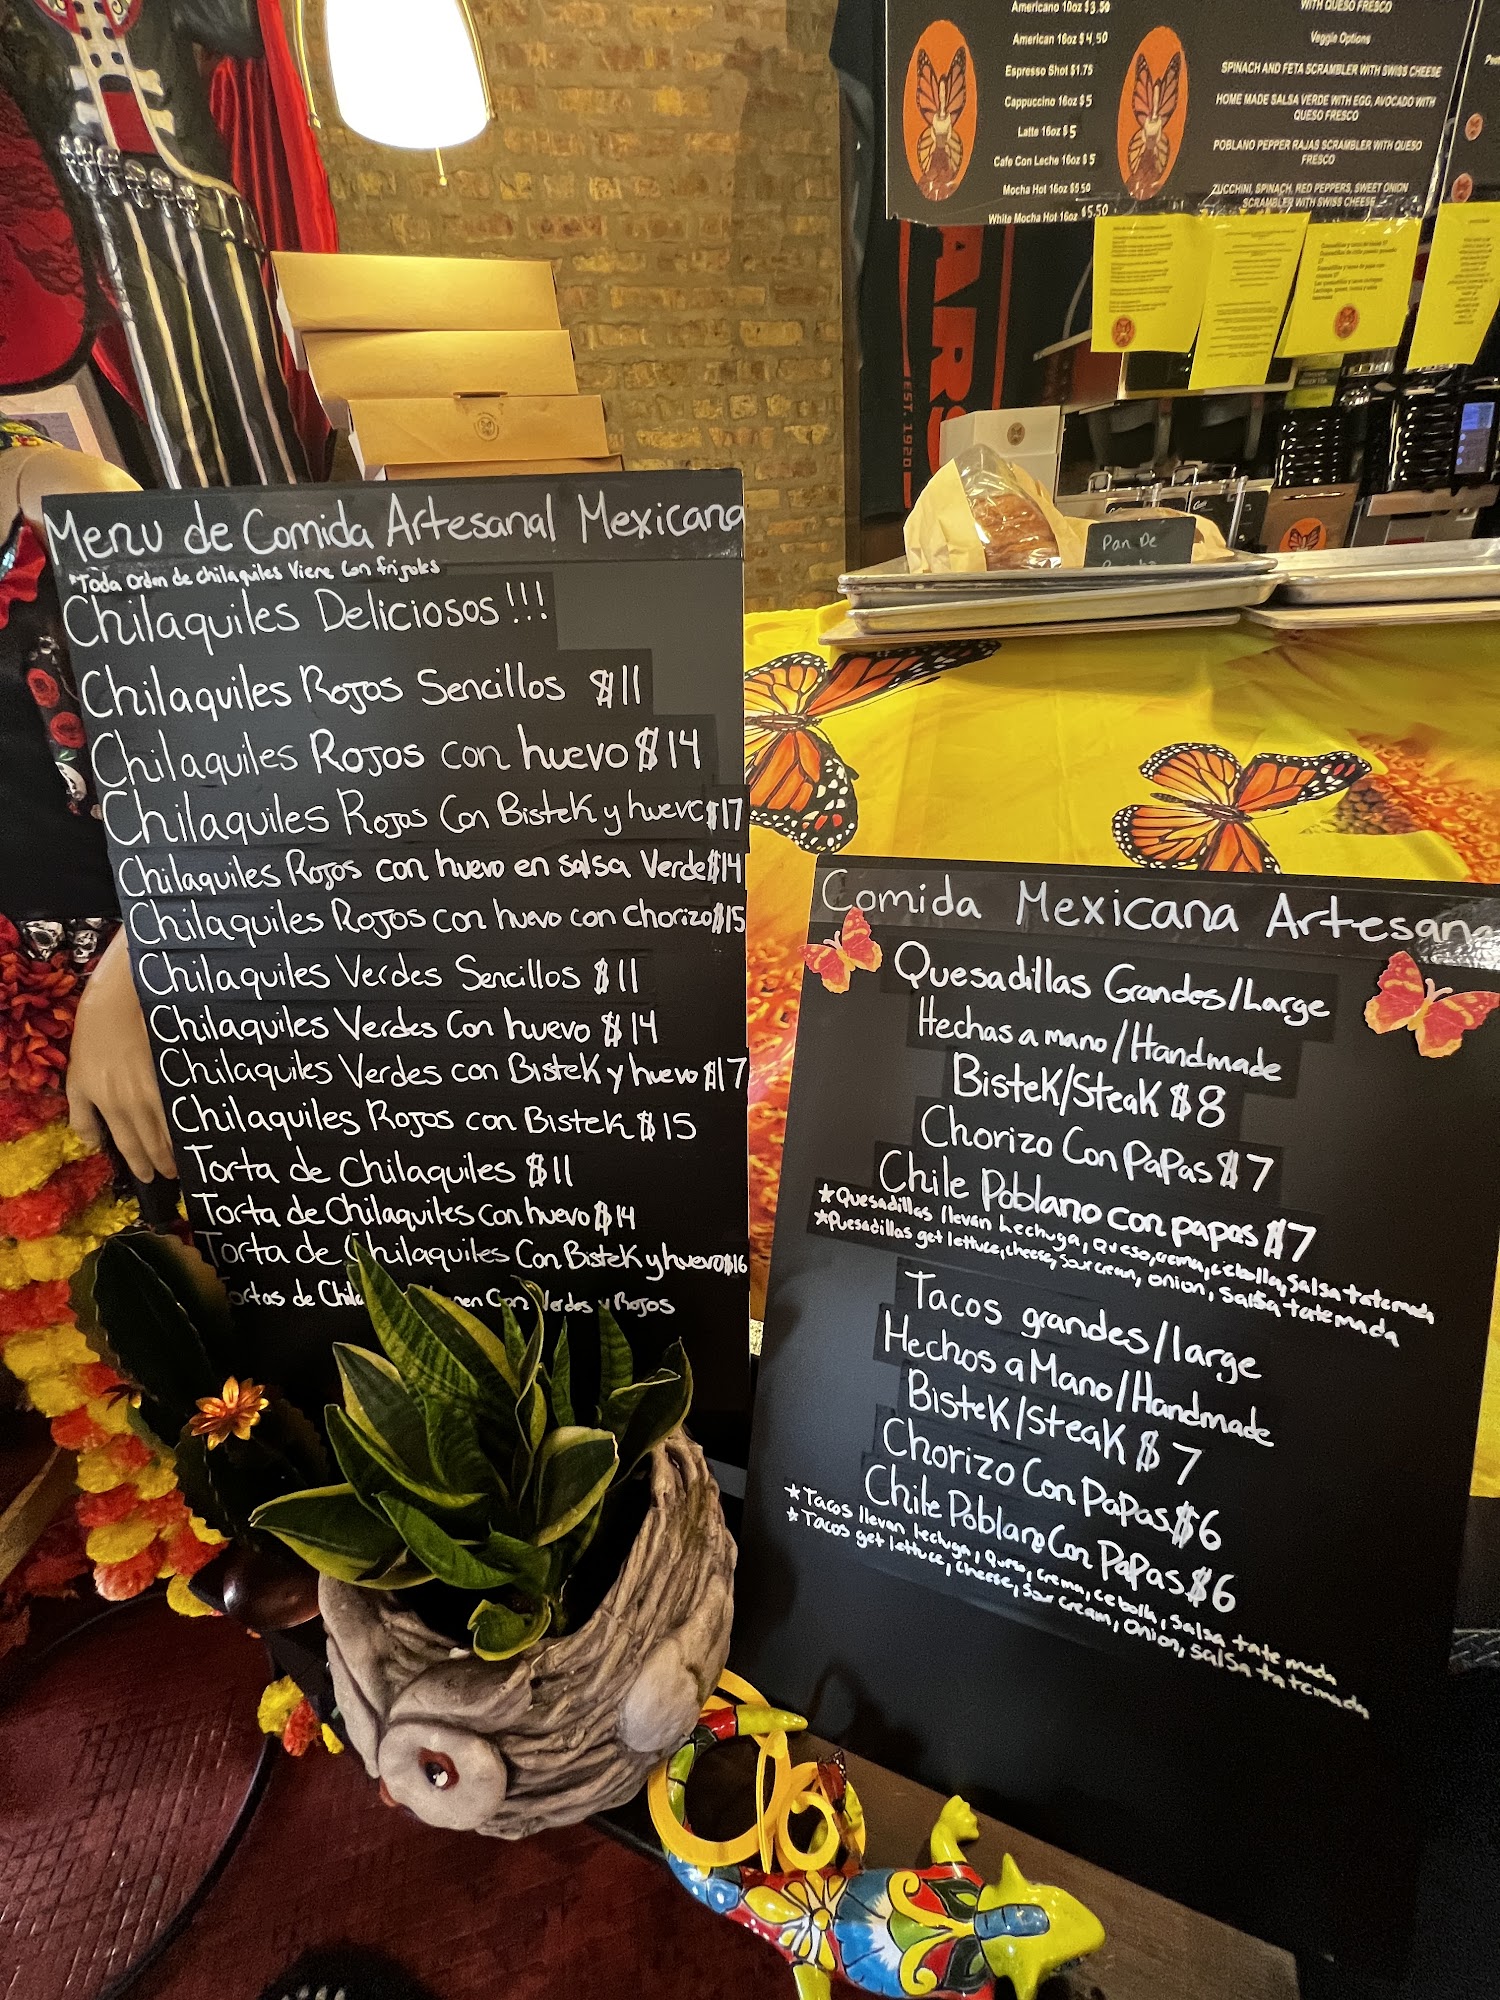 Americano 10oz $3.50
American 16oz $4.50
Espresso Shot $1.75
Cappuccino 16oz $5
Latte 16oz $5
Cafe Con Leche 16oz $5
Mocha Hot 16oz $5.50
White Mocha Hot 16oz $5.50
WITH QUESO FRESCO
Veggie Options
SPINACH AND FETA SCRAMBLER WITH SWISS CHEESE
HOME MADE SALSA VERDE WITH EGG, AVOCADO WITH
QUESO FRESCO
POBLANO PEPPER RAJAS SCRAMBLER WITH QUESO
FRESCO
ZUCCHINI, SPINACH, RED PEPPERS, SWEET ONION
SCRAMBLER WITH SWISS CHEESE
EST. 1920
Pan De
Menu de Comida Artesanal Mexicana
*Toda orden de chilaquiles viene con frijoles
Chilaquiles Deliciosos!!!
Chilaquiles Rojos Sencillos $11
Chilaquiles Rojos con huevo $14
Chilaquiles Rojos Con Bistek y huevo $17
Chilaquiles Rojos con huevo en salsa Verde $14
Chilaquiles Rojos con huevo con chorizo $15
Chilaquiles Verdes Sencillos $11
Chilaquiles Verdes Con huevo $14
Chilaquiles Verdes con Bistek y huevo $17
Chilaquiles Rojos con Bistek $15
Torta de Chilaquiles $11
Torta de Chilaquiles con huevo $14
Torta de Chilaquiles Con Bistek y huevo $16
Tortas de Verdes y Rojos
Comida Mexicana Artesana
Quesadillas Grandes/Large
Hechas a mano/Handmade
Bistek/Steak $8
Chorizo Con Papas $7
Chile Poblano con papas $7
*Quesadillas llevan lechuga, queso, crema, cebolla, salsa tatemada
*Quesadillas get lettuce, cheese, sour cream, onion, salsa tatemada
Tacos grandes/large
Hechos a Mano/Handmade
Bistek/Steak $7
Chorizo Con Papas $6
Chile Poblano Con Papas $6
*Tacos llevan lechuga, queso, crema, cebolla, salsa tatemada
*Tacos get lettuce, cheese, sour cream, onion, salsa tatemada